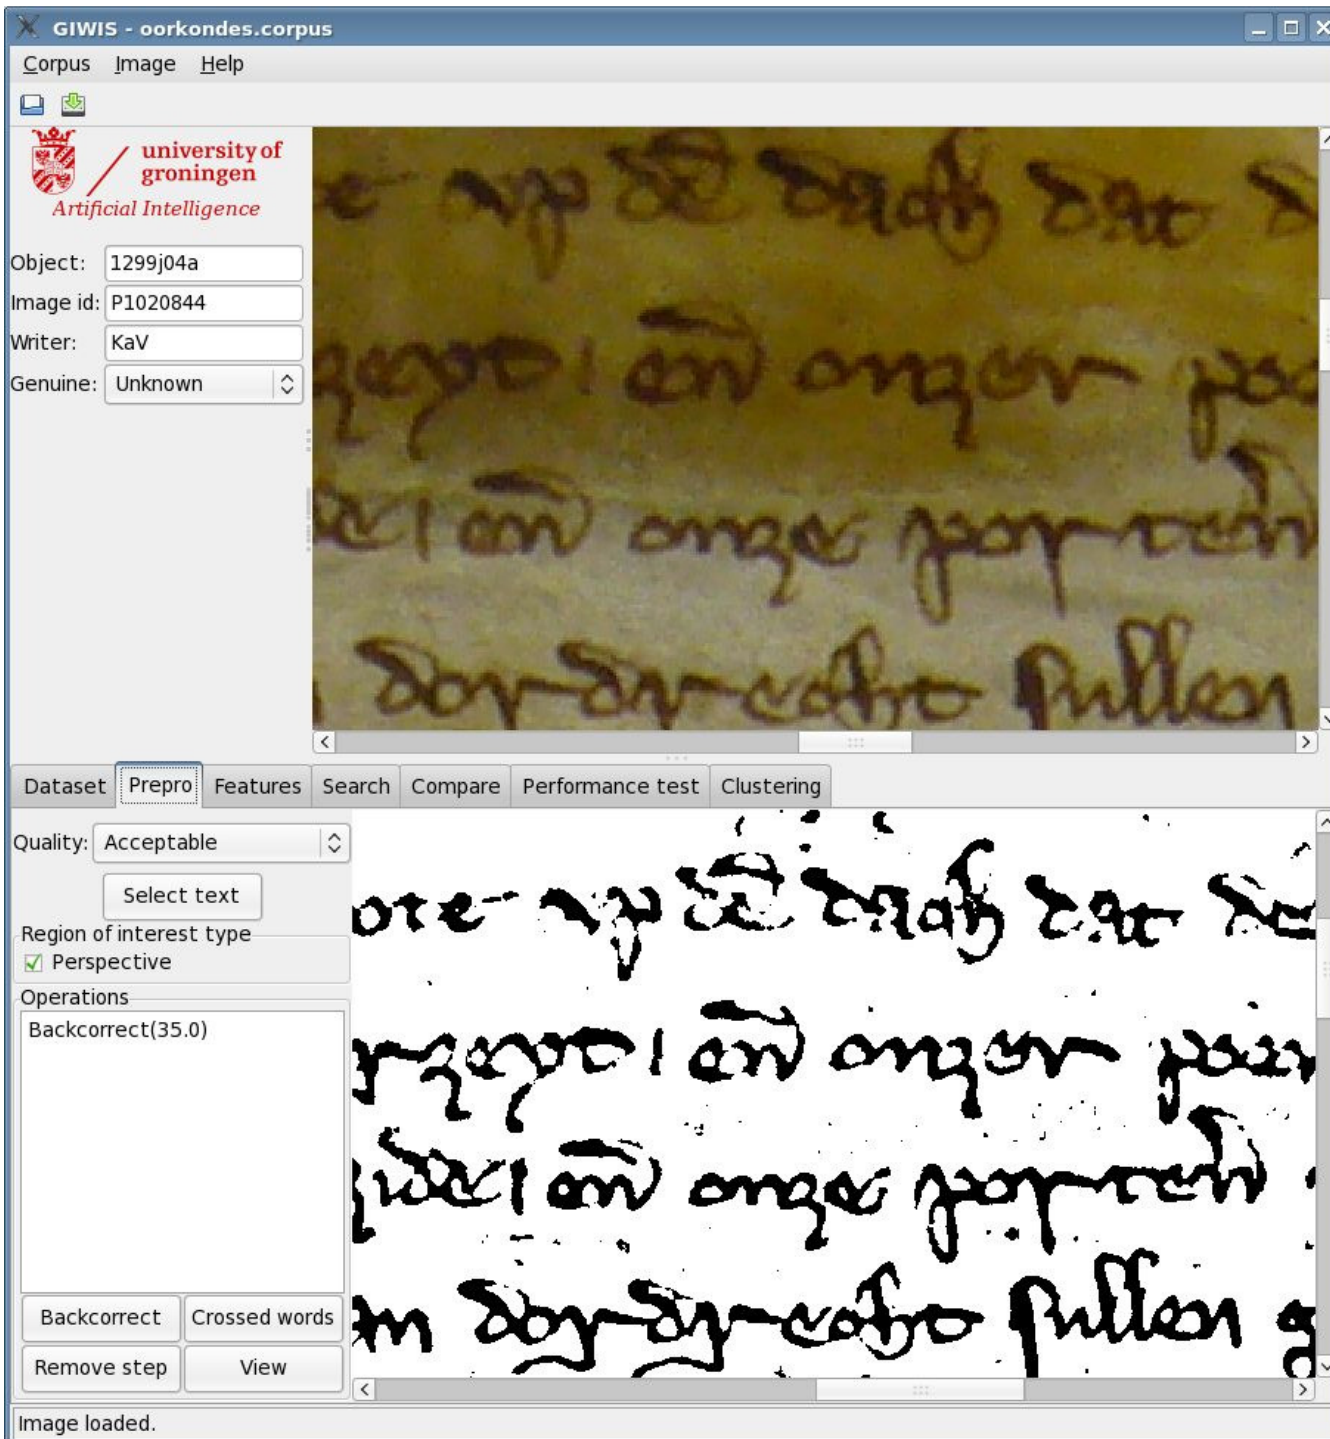 GIWIS - oorkondes.corpus
Corpus Image Help
university of
groningen
Artificial Intelligence
Object: 1299j04a
Image id: P1020844
Writer: KaV
Genuine: Unknown
dat
en̄ onzer
en̄ onze porten̄
dordrecht sullen
Dataset Prepro Features Search Compare Performance test Clustering
Quality: Acceptable
Select text
Region of interest type
Perspective
Operations
Backcorrect(35.0)
Backcorrect Crossed words
Remove step View
dat
en̄ onzer
en̄ onze porten̄
dordrecht sullen
Image loaded.